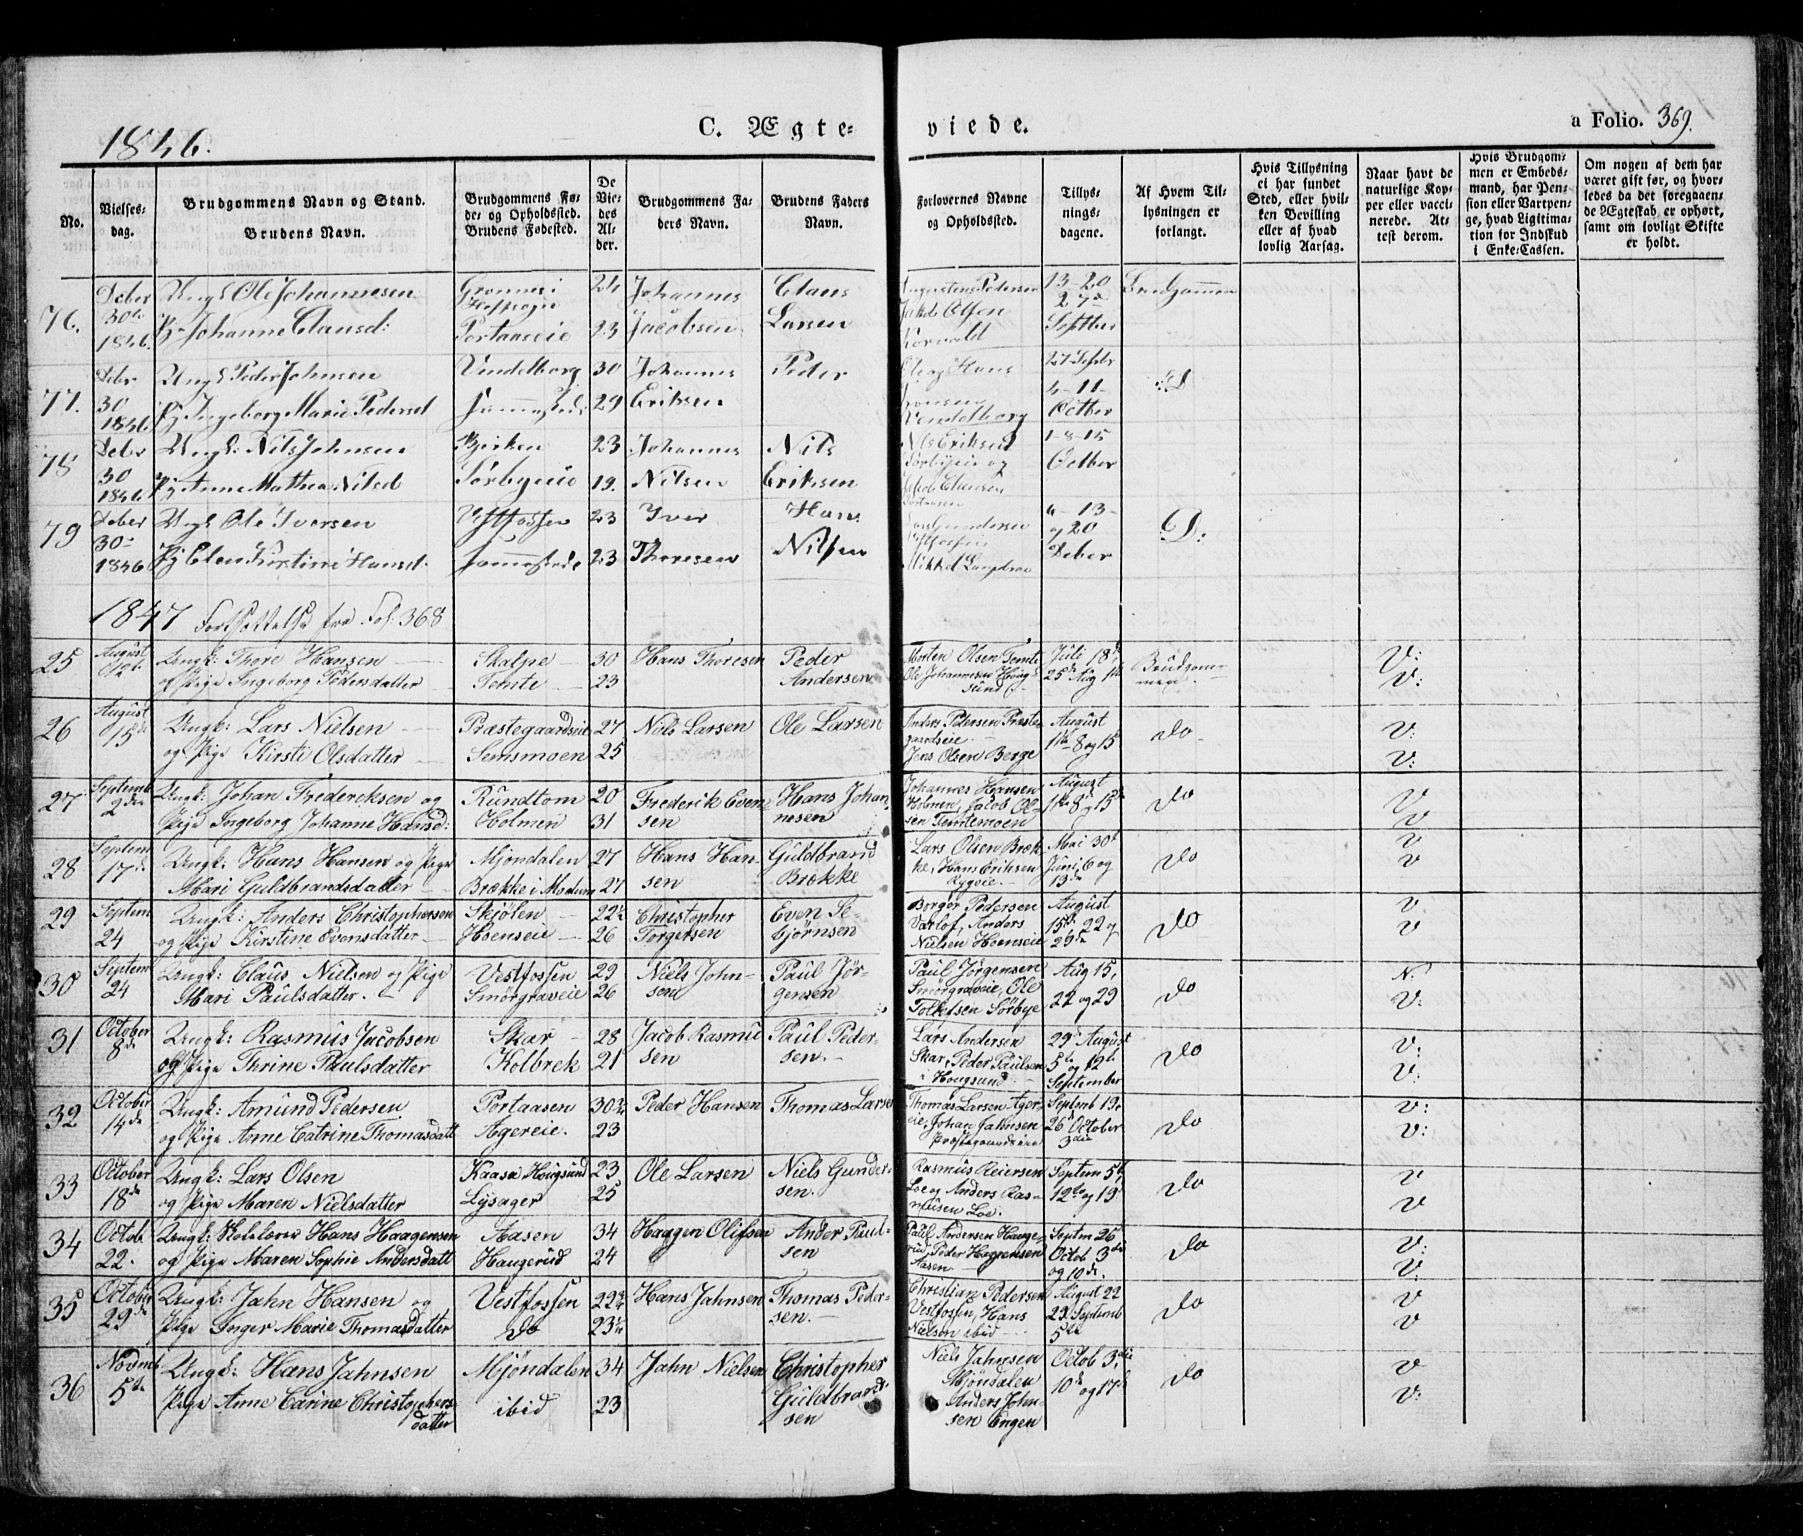 1846.
C. Ægte-
viede.
a Folio. 369.
No.
Vielses-
dag.
Brudgommens Navn og Stand.
Brudens Navn.
Brudgommens Fø-
de- og Opholdssted.
Brudens Fødested.
De
Vie-
des
Al-
der.
Brudgommens Fa-
ders Navn.
Brudens Faders
Navn.
Forlovernes Navne
og Opholdssted.
Tillys-
nings-
dagene.
Af Hvem Til-
lysningen er
forlangt.
Hvis Tillysning
ei har fundet
Sted, eller hvil-
ken Bevilling
eller af hvad
lovlig Aarsag.
Naar havt de
naturlige Kop-
per eller vacci-
nerede. At-
test derom.
Hvis Brudgom-
men er Embeds-
mand, har Pen-
sion eller Vartpen-
ge, hvad Ligitima-
tion for Indskud
i Enke-Cassen.
Om nogen af dem har
været gift før, og hvor-
ledes da det foregaaen-
de Ægteskab er ophørt,
samt om lovligt Skifte
er holdt.
76.
Deber
30te
1846.
Ungk Ole Johannesen
Pg Johanne Clausd:
Portaaseie
24
23
Johannes
Jacobsen
Claus
Larsen
Augustinus Pedersen
Korvald
13-20
27de
Septber
Brudgommen
77.
Deber
30
1846
Ungk Peder Johnsen
Pg Ingeborg Marie Pedersd
Vendelborg
30
29
Johannes
Eriksen
Peder
Hans
Vendelborg
27 Septbr
4-11-
Octber
D
78
Deber
30
1846.
Ungk: Nils Johnsen
Pg Anne Mathea Nilsd
Birken
Sørbyeie
23
19.
Johannes
Nilsen
Nils
Eriksen
Nils Eriksen
Sørbyeie og
Jakob Clausen
1-8-15
Octber
79
Deber
30-
1846
Ungk Ole Iversen
Pg Elen Kirstine Hansd.
Vestfossen
23
23
Iver
Thoresen
Hans
Nilsen
Gundersen
Mikkel
6-13-
og 20
Deber
D:
1847 Fortsættelse fra Fol. 368
25
August
12te
Ungk: Thore Hansen
og Pige Ingeborg Pedersdatter
Skalpe
Temte
30
23
Hans Thoresen
Peder
Andersen
Morten Olsen Temte
Ole Johannesen Houg-
sund
Juli 18de
25de Aug 1te
Brudgom-
men.
V:
V:
26
August
15de
Ungk: Lars Nielsen
og Pige Kirsti Olsdatter
Præstegaardseie
Semsmoen
27
25
Niels Larsen
Ole Larsen
Anders Pedersen Præste-
gaardseie
Jens Olsen Berge
August
1te 8 og 15
do
V:
V:
27
Septemb
2den
Ungk: Johan Frederiksen og
Pige Ingeborg Johanne Hansd:
Rundtom
Holmen
20
31
Frederik Even-
sen
Hans Johan-
nesen
Johannes Hansen
Holmen, Jacob Ol-
sen Temtemoen
August
1te 8 og 15de
do
V
V
28
Septem
17de
Ungk: Hans Hansen og Pige
Mari Guldbrandsdatter
Mjøndalen
Brække i Modum
27
27
Hans Han-
sen
Guldbrand
Brække
Lars Olsen Bræk-
ke, Hans Eriksen
Rygeie.
Mai 30te
Juni 6 og
13de
do
V
V
29
Septem
24
Ungk: Anders Christophersen
og Pige Kirstine Evensdatter
Skjølen
Hoenseie
22½
26
Christopher
Torgersen
Even Se-
bjørnsen
Borger Pedersen
Varlof, Anders
Nielsen Hoenseie
August
15de 22 og
29de
do
V
V
30
Septem
24
Ungk: Claus Nielsen og Pige
Mari Paulsdatter.
Vestfossen
Smørgraveie
29
26
Niels John-
sen
Paul Jør-
gensen
Paul Jørgensen
Smørgraveie, Ole
Tolletsen Sørbye
Aug 15,
22 og 29
do
N.
V:
31
October
8de
Ungk: Rasmus Jacobsen
og Pige Thrine Paulsdatter
Skar
Kolbrek
28
21
Jacob Rasmus-
sen
Paul Peder-
sen.
Lars Andersen
Skar, Peder Paulsen
i Hougsund
29de August
5te og 12te
September
do
V:
V:
32
October
14de
Ungk: Amund Pedersen
og Pige Anne Catrine Thomasdatt
Portaasen
Agereie.
30¾
23
Peder Hansen
Thomas Larsen
Thomas Larsen Ager-
eie, Johan Jahnsen
Præstegaardseie
Septemb 19,
26 October
3die
do
V:
V:
33
October
18de
Ungk: Lars Olsen
og Pige Maren Nielsdatter
Kaasa Hougsund
Lysager
23
25
Ole Larsen
Niels Gunder-
sen.
Rasmus Reiersen
Loe og Anders Ras-
musen Loe.
Septem 5te
12te og 19de
do
V
V
34
Octob.
22.
Ungk: Skolelærer Hans Haagensen
og Pige Maren Sophie Andersdatt
Aasen
Haugerud
34
24
Haagen Olifsen
Ander Paul-
sen
Paul Andersen Hauge-
rud, Peder Haagensen
Aasen
Septm 26
Octob 3die
og 10de.
do
V:
V:
35
October
29de
Ungk: Jahn Hansen og
Pige Inger Marie Thomasdatter
Vestfossen
do
22¾
23¼
Hans Jahnsen
Thomas Peder-
sen.
Christian Pedersen
Vestfossen, Hans
Nielsen ibid
August 22
29. Septemb
5te
do
V
V
36
Novmb
5te
Ungk: Hans Jahnsen
Pige Anne Carine Christophers-
datter
Mjøndalen
ibid
34
23
Jahn Nielsen
Christopher
Guldbrand-
sen
Niels Jahnsen
Mjøndalen
Anders John-
sen Engen
Octob 3die
10de og 17de
do
V
V: